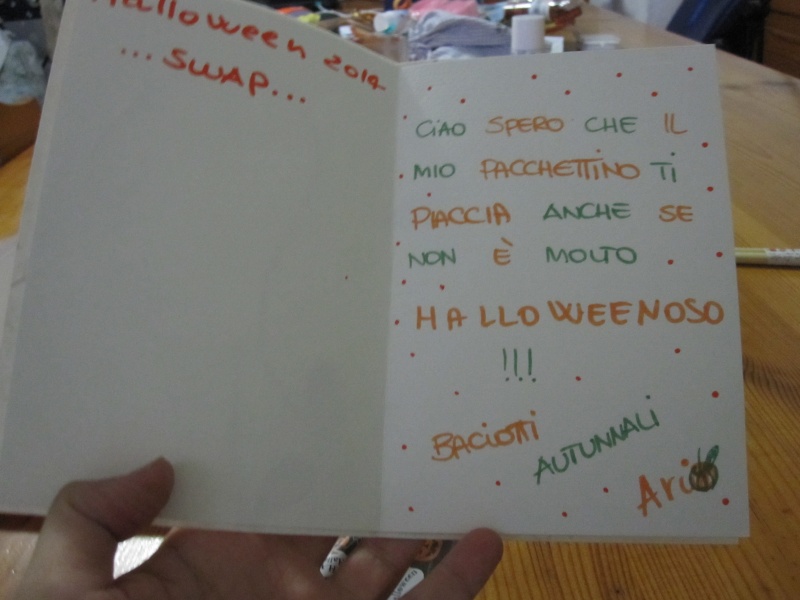 Halloween 2014
...SWAP...
CIAO SPERO CHE IL
MIO PACCHETTINO TI
PIACCIA ANCHE SE
NON È MOLTO
HALLOWEENOSO
!!!
BACIOTTI
AUTUNNALI
Ari